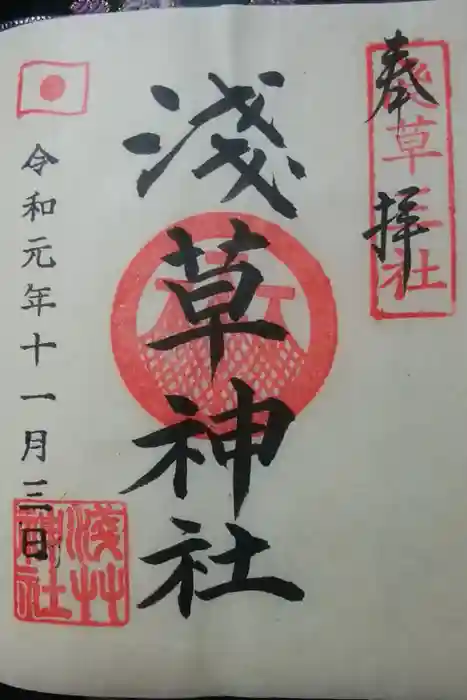 奉拝
淺草三社
淺草神社
令和元年十一月三日
淺草神社